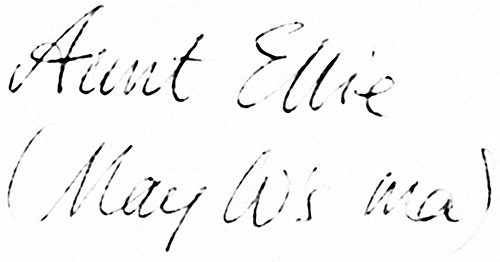 Aunt Ellie
(May W's ma)